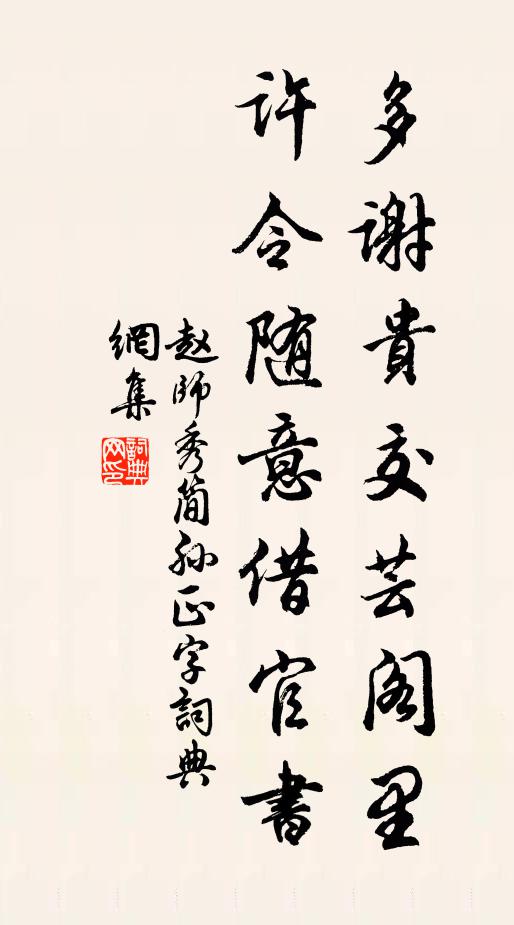 多谢貴交芸阁里
许令随意借官書
赵師秀简孙正字詞典
網集
詞典网印